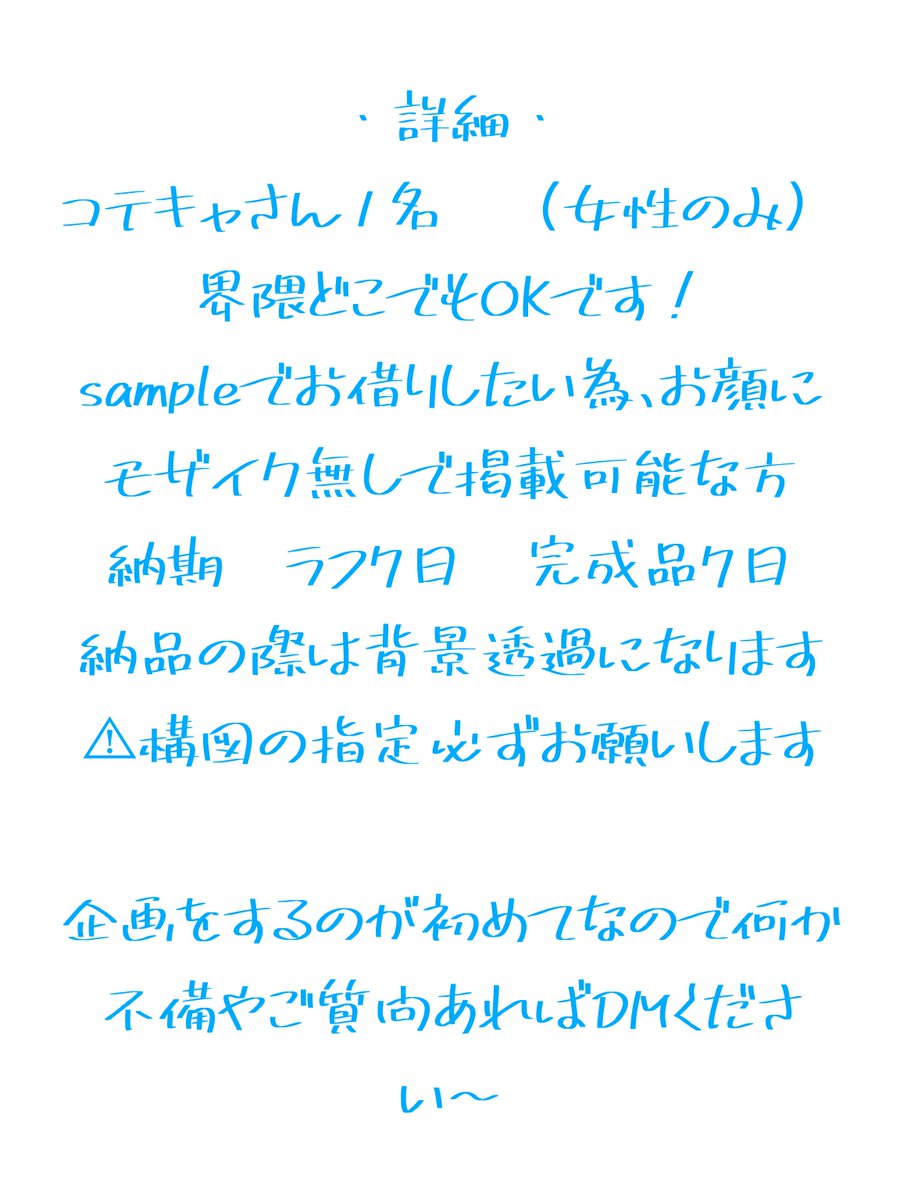 ・詳細・
コテキャさん1名　（女性のみ）
界隈どこでもOKです！
sampleでお借りしたい為、お顔に
モザイク無しで掲載可能な方
納期　ラフ7日　完成品7日
納品の際は背景透過になります
⚠構図の指定必ずお願いします
企画をするのが初めてなので何か
不備やご質問あればDMくださ
い〜